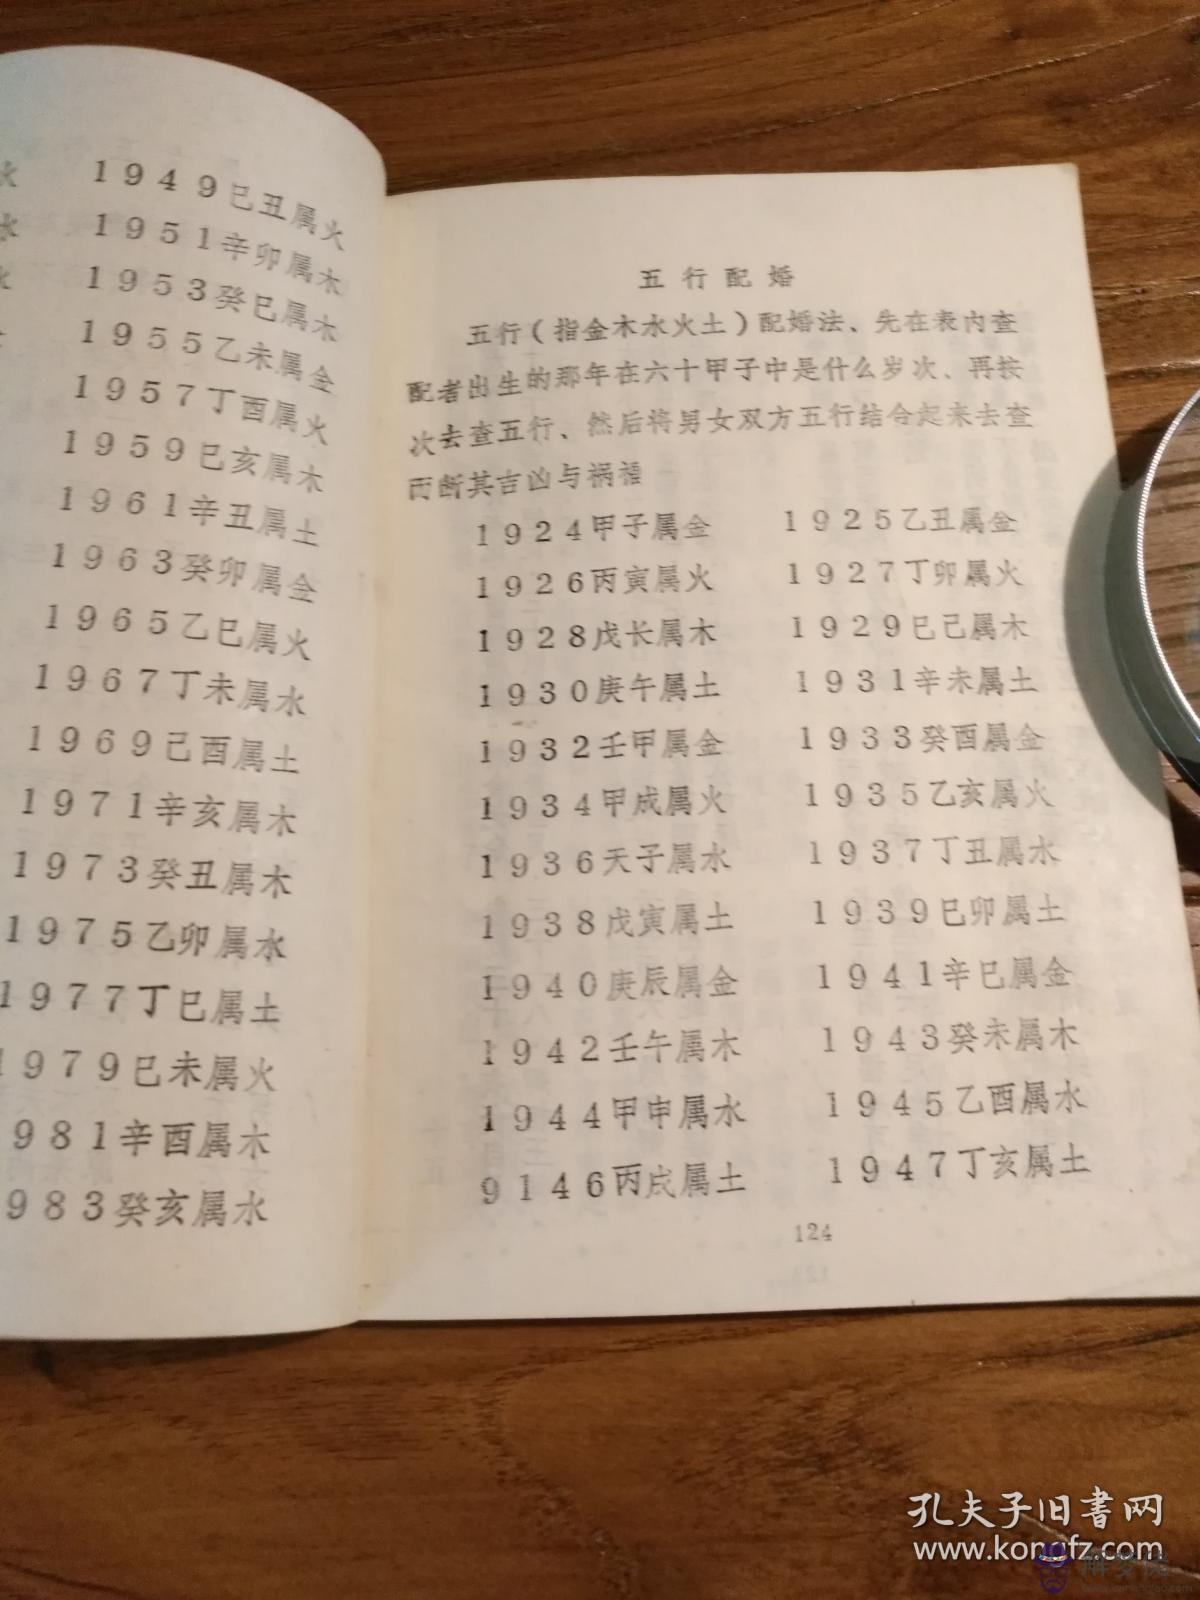 火
水
水
1949巳丑属火
1951辛卯属木
1953癸巳属木
1955乙未属金
1957丁酉属火
1959巳亥属木
1961辛丑属土
1963癸卯属金
1965乙巳属火
1967丁未属水
1969己酉属土
1971辛亥属木
1973癸丑属木
1975乙卯属水
1977丁巳属土
1979巳未属火
981辛酉属木
983癸亥属水
五行配婚
五行(指金木水火土)配婚法、先在表内查
配者出生的那年在六十甲子中是什么岁次、再按
次去查五行、然后将男女双方五行结合起来去查
而断其吉凶与祸福
1924甲子属金 1925乙丑属金
1926丙寅属火 1927丁卯属火
1928戊长属木 1929巳己属木
1930庚午属土 1931辛未属土
1932壬甲属金 1933癸酉属金
1934甲成属火 1935乙亥属火
1936天子属水 1937丁丑属水
1938戊寅属土 1939巳卯属土
1940庚辰属金 1941辛巳属金
1942壬午属木 1943癸未属木
1944甲申属水 1945乙酉属水
9146丙戌属土 1947丁亥属土
124
孔夫子旧书网
www.kongfz.com
解梦佬